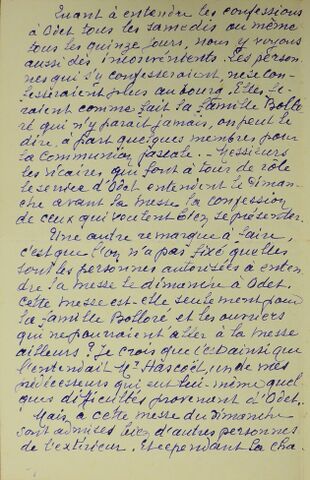 Quant à entendre les confessions
à Odet tous les samedis ou même
tous les quinze jours, nous y voyons
aussi des inconvénients. Les person-
nes qui s'y confesseraient, ne se con-
fesseraient plus au bourg. Elles fe-
raient comme fait la famille Bollo-
ré qui n'y parait jamais, on peut le
dire, à part quelques membres pour
la Communion pascale. – Messieurs
les vicaires qui font à tour de rôle
le service d'Odet entendent le diman-
che avant la messe la confession
de ceux qui veulent bien se présenter.
Une autre remarque à faire,
c'est que l'on n'a pas fixé quelles
sont les personnes autorisées à enten-
dre la messe le dimanche à Odet.
Cette messe est-elle seulement pour
la famille Bolloré et les ouvriers
qui ne pourraient aller à la messe
ailleurs ? Je crois que c'est ainsi que
l'entendait Mr Hascoët, un de mes
prédécesseurs qui eut lui-même quel-
ques difficultés provenant d'Odet.
Mais à cette messe du dimanche
sont admises bien d'autres personnes
de l'extérieur. Et cependant la cha-